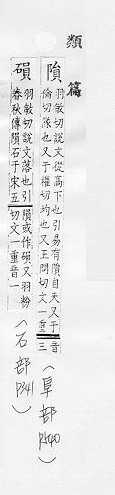 類篇
隕羽敏切說文從高下也引易有隕自天又于
倫切落也又于權切均也又王問切文一重音三
（阜部P540）
磒羽敏切說文落也引
春秋傳隕石于宋五
隕或作磒又羽粉
切文一重音一
（石部P341）